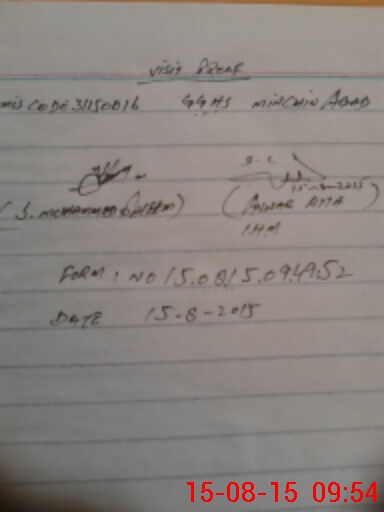 VISIT PROOF
MIS CODE 31150016 GGHS MINCHIN ABAD
15-8-2015
(S. MOHAMMED SALEEM) (ANWAR ATTA
IHM
FORM : NO 15.0815.094952
DATE 15-8-2015
15-08-15 09:54